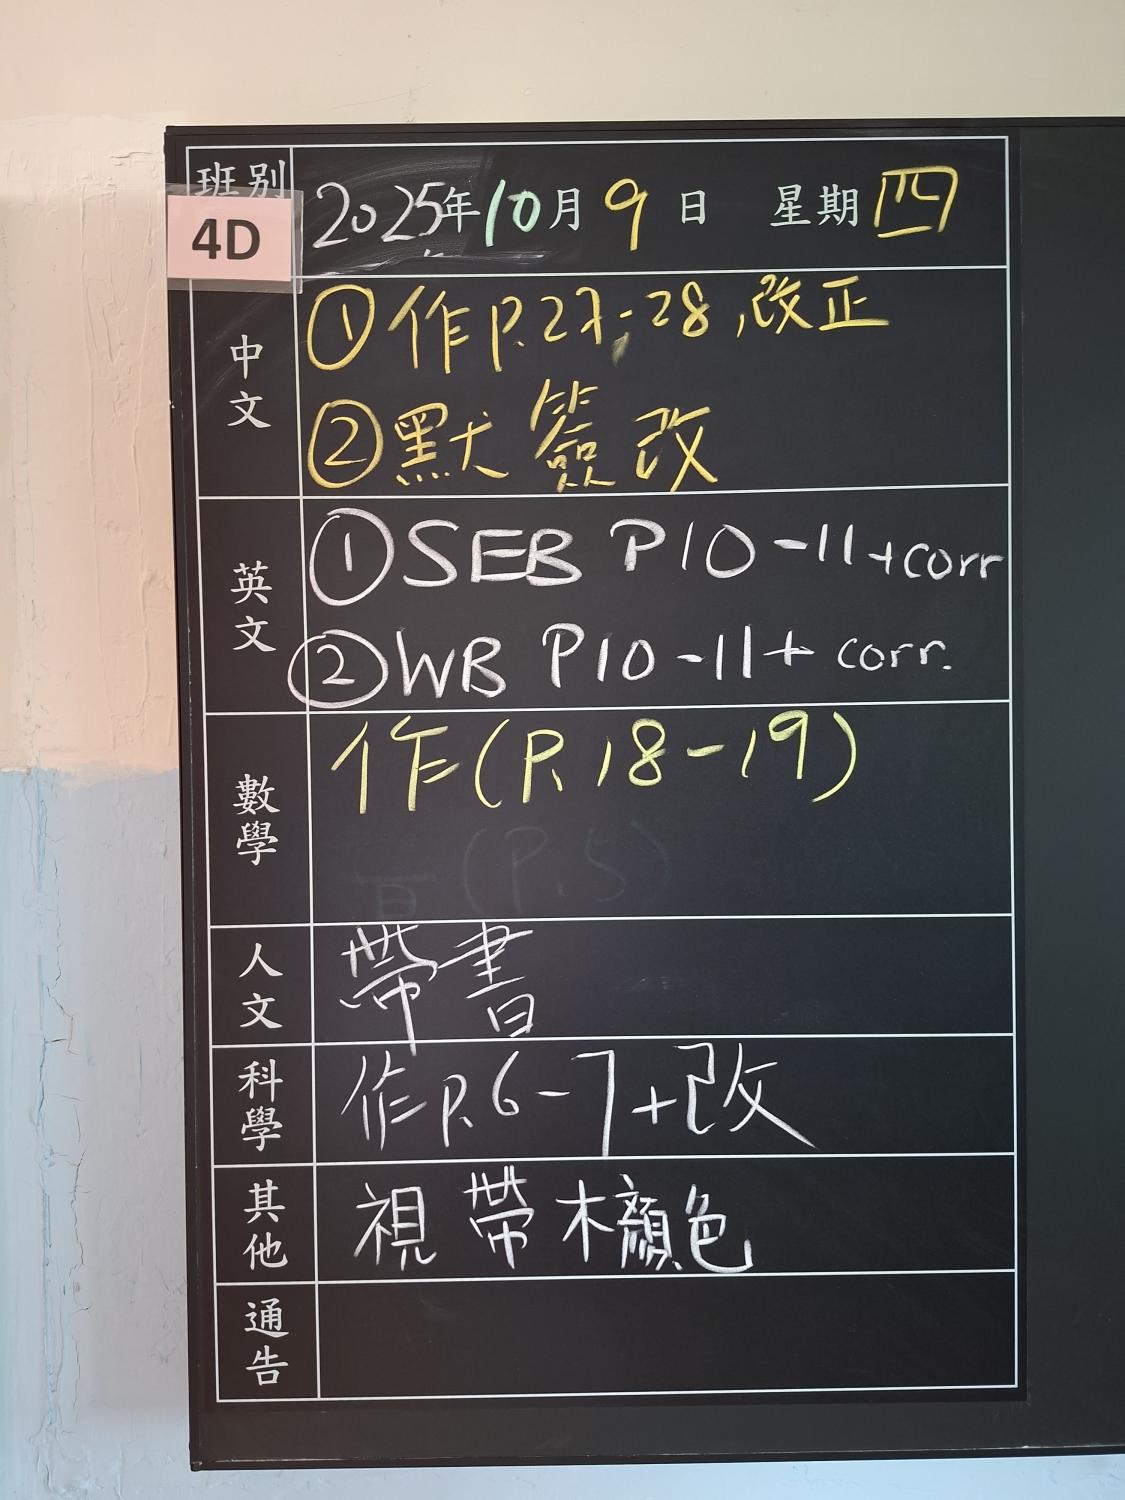 班別
4D
2025年10月9日 星期四
中文
①作P.27-28,改正
②默簽改
英文
①SEB P10-11+corr
②WB P10-11+corr.
數學
作(P.18-19)
(P.5)
人文
帶書
科學
作P.6-7+改
其他
視帶木顏色
通告